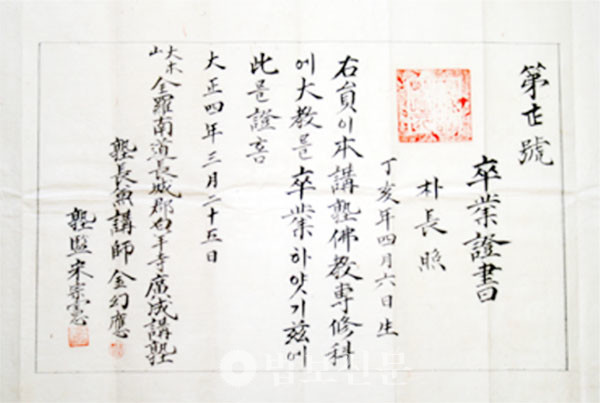 第 號
卒業證書
朴長照
丁亥年四月六日生
右員이本講塾佛教專修科
에大教를卒業하얏기玆에
此를證홈
大正四年三月二十五日
大本山全羅南道長城郡白羊寺廣成講塾
塾長兼講師金幻應
塾監宋宗憲
법보신문